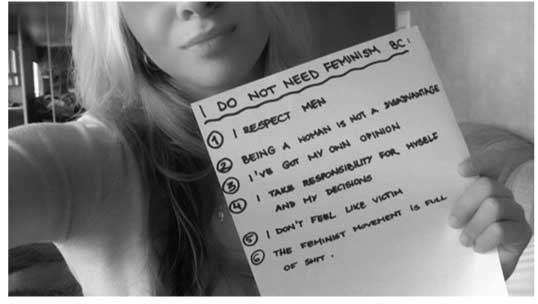 I DO NOT NEED FEMINISM BC:
① I RESPECT MEN
② BEING A WOMAN IS NOT A DISADVANTAGE
③ I'VE GOT MY OWN OPINION
④ I TAKE RESPONSIBILITY FOR MYSELF
AND MY DECISIONS
⑤ I DON'T FEEL LIKE VICTIM
⑥ THE FEMINIST MOVEMENT IS FULL
OF SHIT.